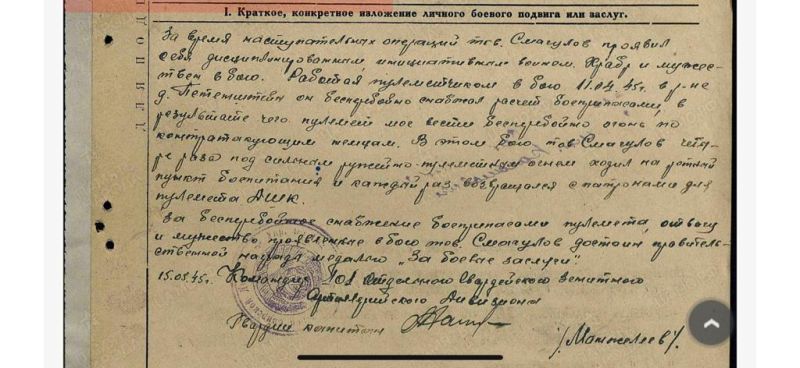 I. Краткое, конкретное изложение личного боевого подвига или заслуг.
За время наступательных операций тов. Смагулов проявил
себя дисциплинированным инициативным воином. Храбр и мужес-
твен в бою. Работая пулеметчиком в бою 11.04.45г. в р-не
д. он бесперебойно снабжал расчет боеприпасами, в
результате чего пулемет мог вести бесперебойно огонь по
контратакующим немцам. В этом бою тов. Смагулов четы-
ре раза под сильным ружейно-пулеметным огнем ходил на ротный
пункт боепитания и каждый раз возвращался с патронами для
пулемета ДШК.
За бесперебойное снабжение боеприпасами пулемета, отвагу
и мужество проявленные в бою тов. Смагулов достоин правитель-
ственной награды медалью „За боевые заслуги".
15.05.45г. Командир 101 Отдельного Гвардейского Зенитного
Артиллерийского Дивизиона
Гвардии капитан